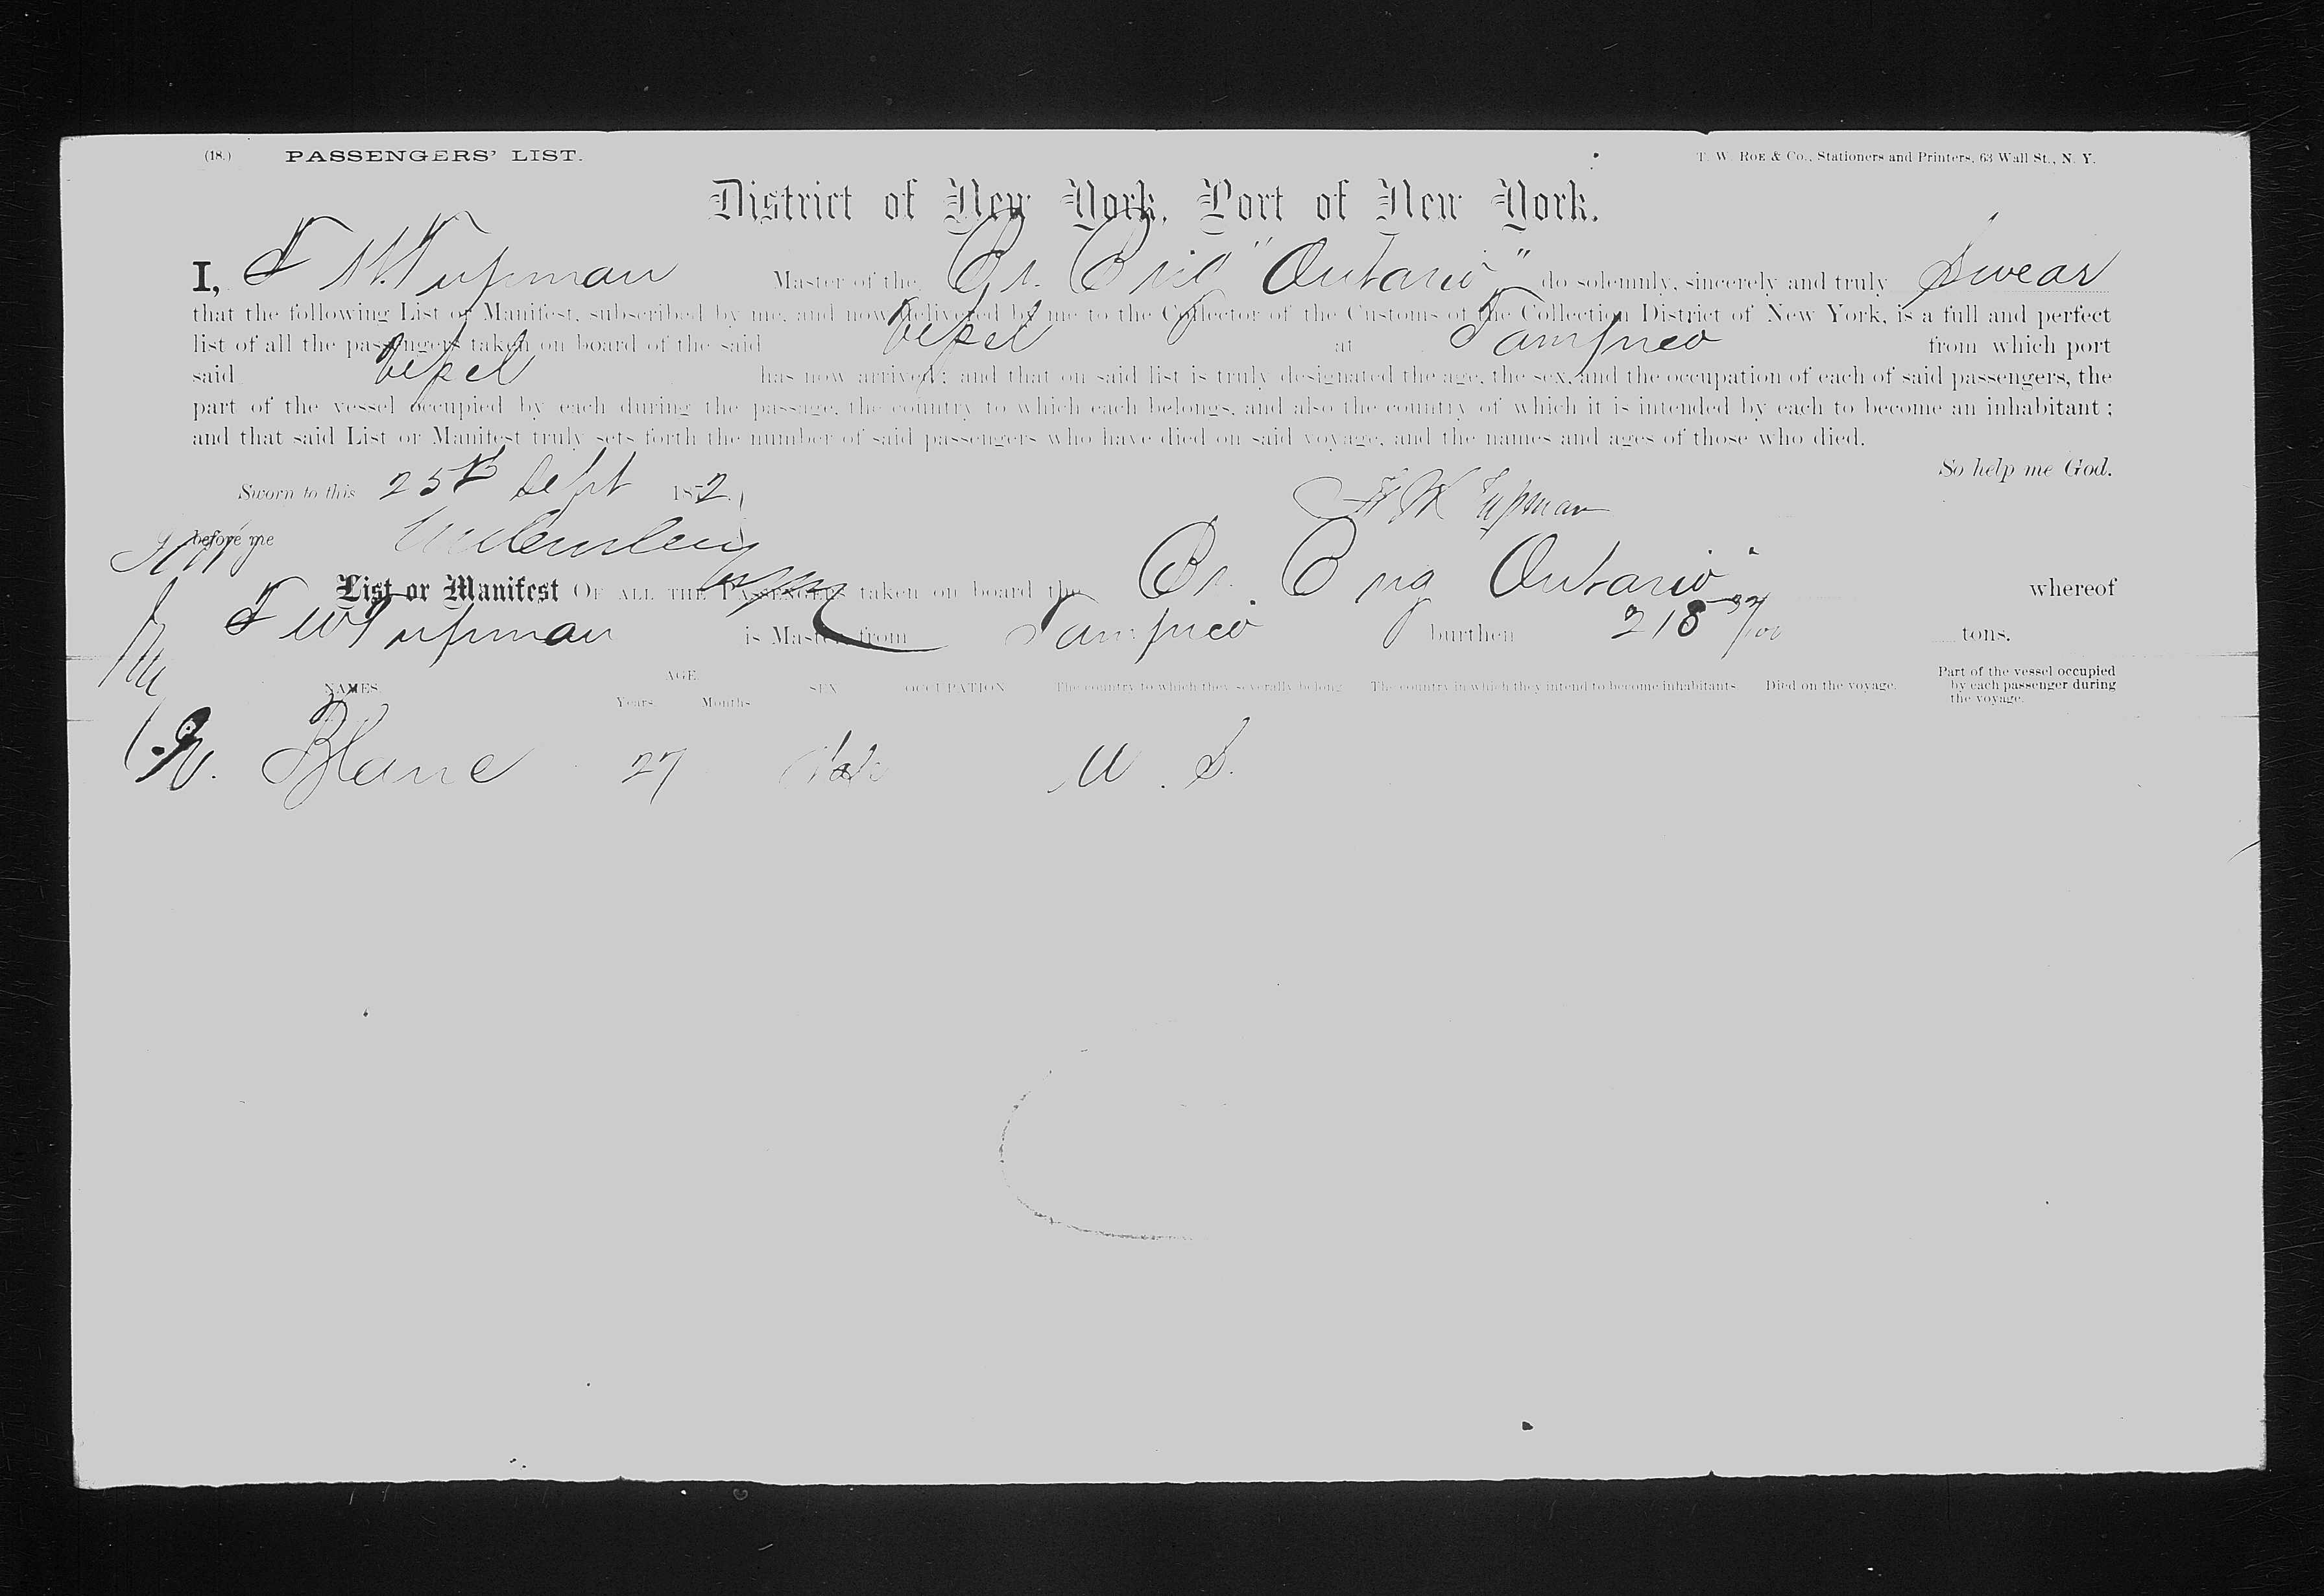 (18.) PASSENGERS' LIST. T. W. ROE & Co., Stationers and Printers, 63 Wall St., N. Y.
District of New York, Port of New York.
I, F W. Tupman Master of the Br. Brig "Ontario" do solemnly, sincerely and truly Swear
that the following List or Manifest, subscribed by me, and now delivered by me to the Collector of the Customs of the Collection District of New York, is a full and perfect
list of all the passengers taken on board of the said Vessel at Tampico from which port
said Vessel has now arrived; and that on said list is truly designated the age, the sex, and the occupation of each of said passengers, the
part of the vessel occupied by each during the passage, the country to which each belongs, and also the country of which it is intended by each to become an inhabitant;
and that said List or Manifest truly sets forth the number of said passengers who have died on said voyage, and the names and ages of those who died.
So help me God.
Sworn to this 25th Sept 1872. F W Tupman
before me
List or Manifest OF ALL THE PASSENGERS taken on board the Br. Brig Ontario" whereof
F W Tupman is Master, from Tampico burthen 218 /100 tons.
NAMES. AGE. Years. Months. SEX. OCCUPATION. The country to which they severally belong. The country in which they intend to become inhabitants. Died on the voyage. Part of the vessel occupied by each passenger during the voyage.
Blanc 27 U. S.